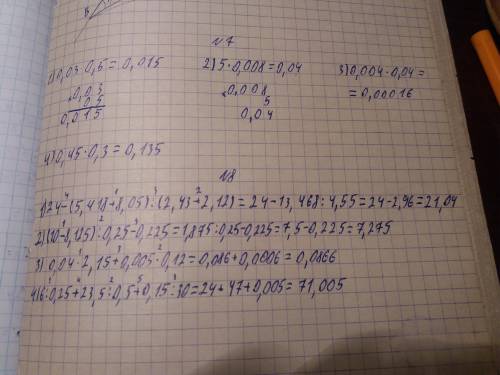 B
N7
1) 0,03·0,5=0,015
2) 5·0,008=0,04
3) 0,004·0,04=
=0,00016
0,03
0,5
0,015
0,008
5
0,04
4) 0,45·0,3=0,135
N8
1) 24-(5,418+8,05):(2,43+2,12)=24-13,468:4,55=24-2,96=21,04
:0,25-0,225=1,875:0,25-0,225=7,5-0,225=7,275
3) 0,04·2,15+0,005·0,12=0,086+0,0006=0,0866
4) 6:0,25+23,5:0,5+0,15:30=24+47+0,005=71,005